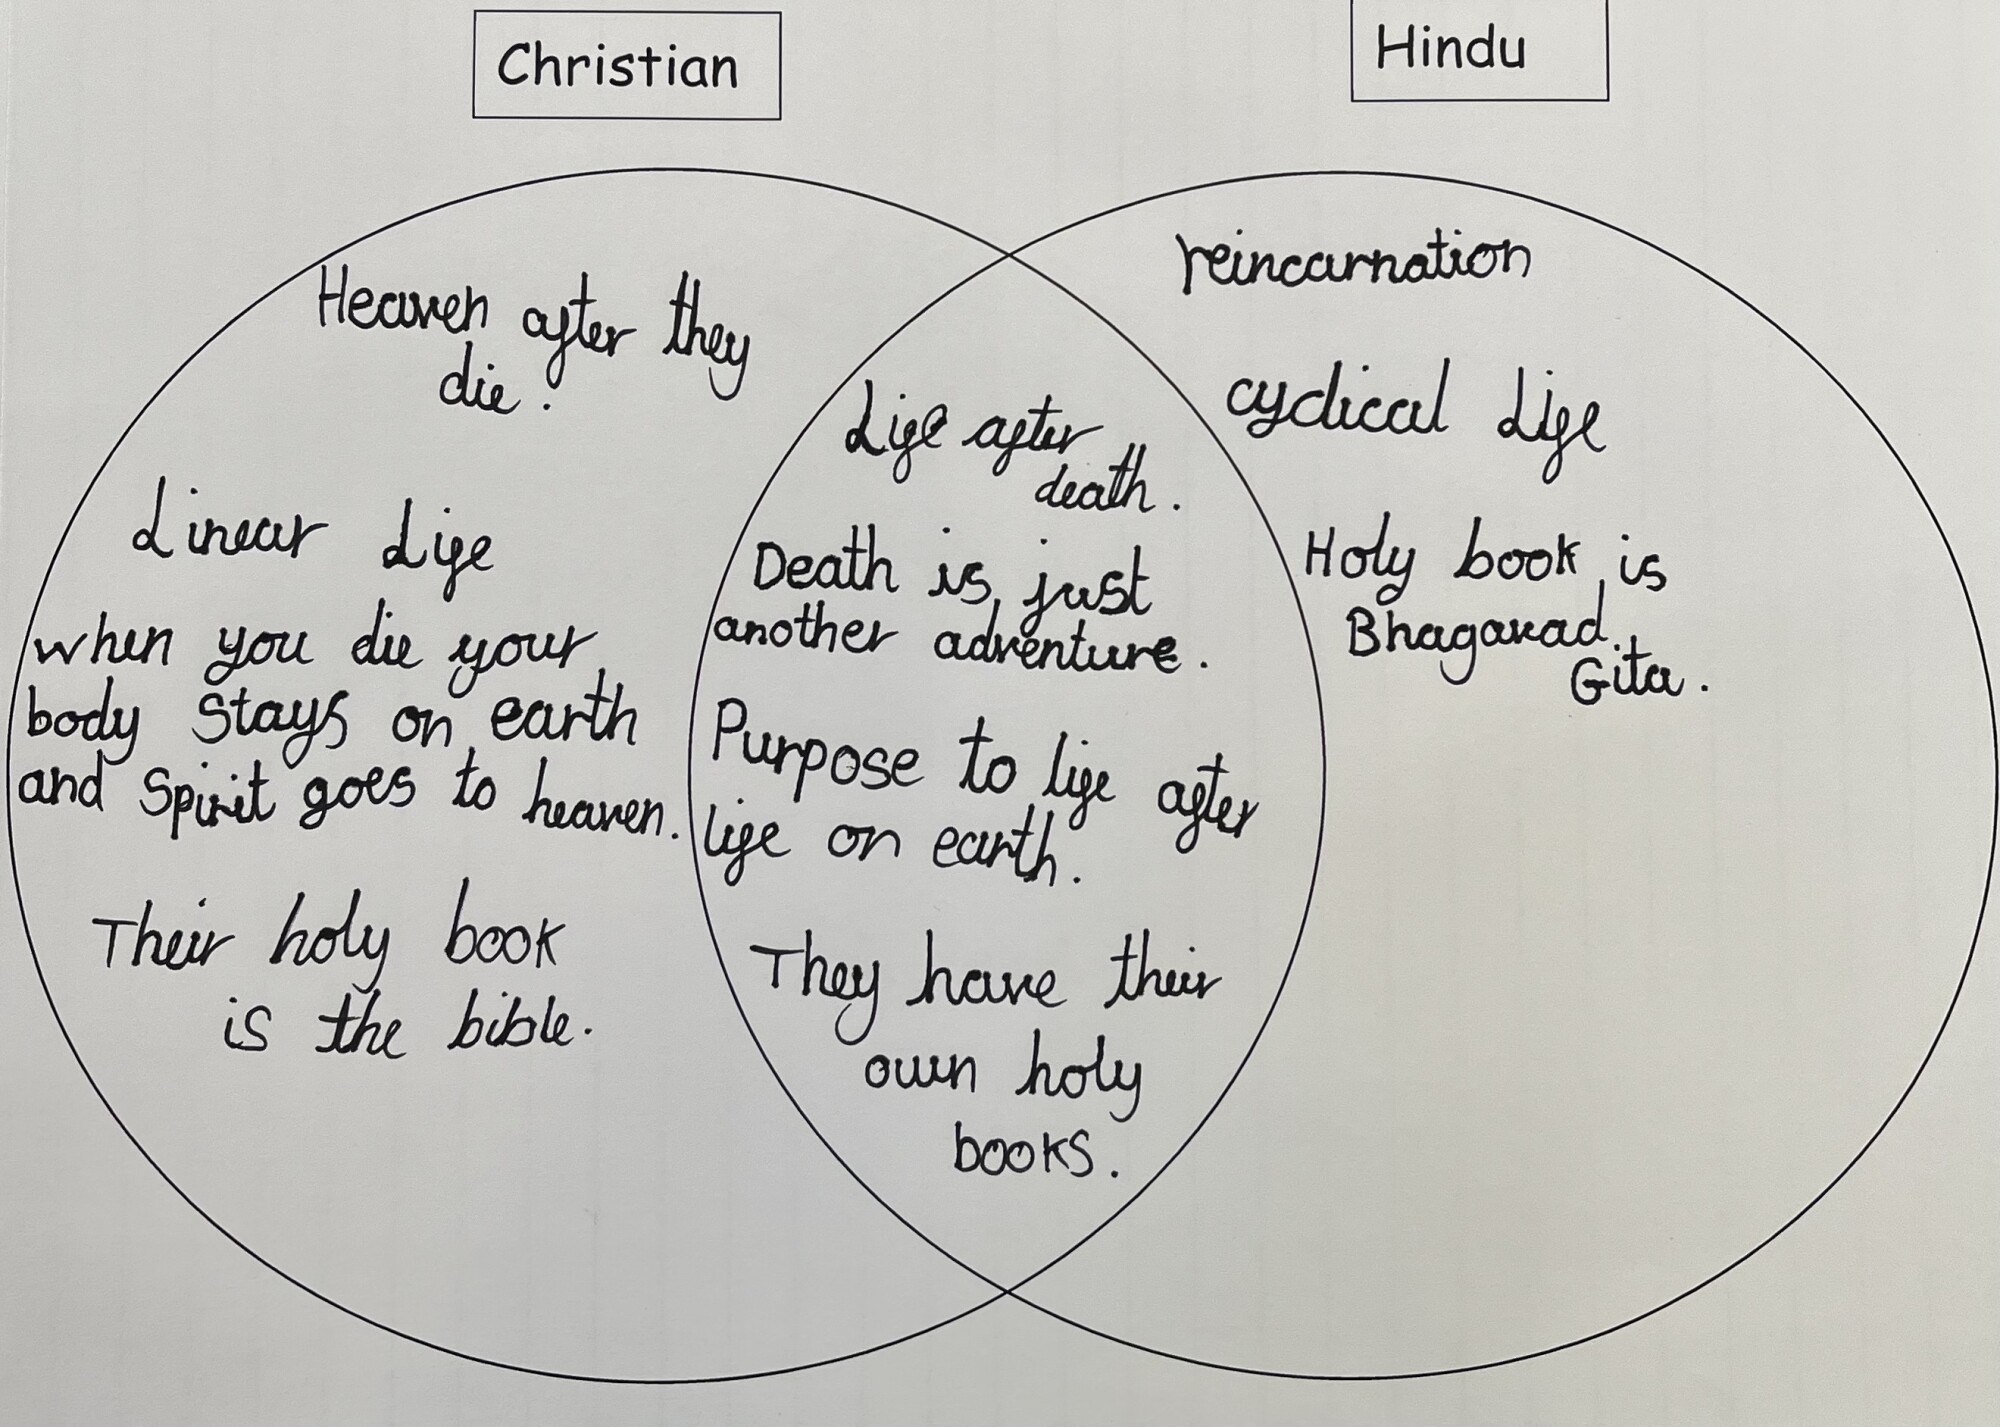 Christian
Hindu
Heaven after they
die.
Linear Life
when you die your
body stays on earth
and spirit goes to heaven.
Their holy book
is the bible.
Life after
death.
Death is just
another adventure.
Purpose to life after
life on earth.
They have their
own holy
books.
reincarnation
cyclical Life
Holy book is
Bhagavad
Gita.